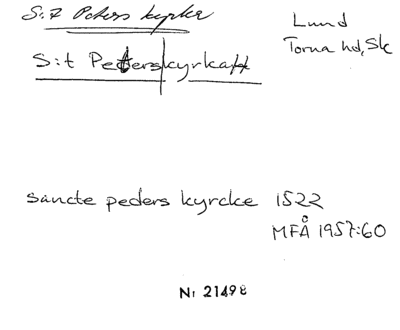 S:t Peters kyrka
Lund
Torna hd, Sk
S:t Peterskyrka
sancte peders kyrcke 1522
MFÅ 1957:60
Nr 21498